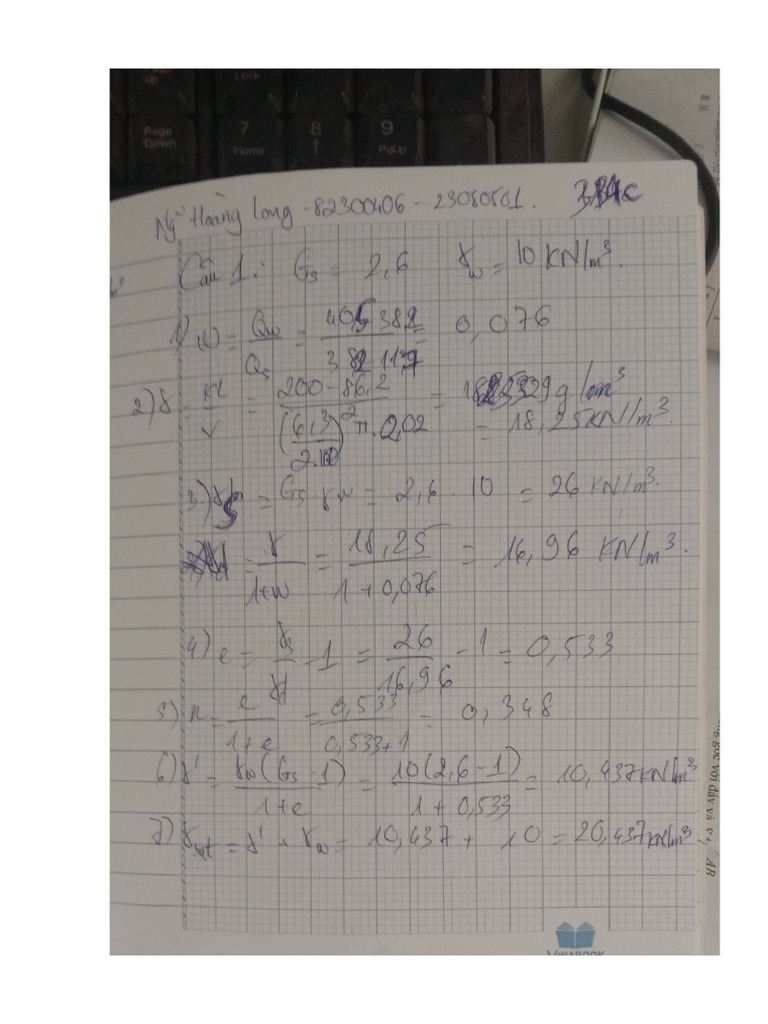 Page Up
Lock
Page Down
7 Home
8 ↑
9 PgUp
Ngũ Hoàng Long - 82300406 - 23080501.
Câu 1: Gs = 2,6 γw = 10 KN/m³.
1) W = Qw/Qs = = 0,076
2) γ = KL/V = (200-86,2)/((6,3/2.10)² π.2,02) = g/cm³
= 18,25KN/m³.
3) γs = Gs γw = 2,6 . 10 = 26 KN/m³.
= γ/(1+w) = 18,25/(1+0,076) = 16,96 KN/m³.
4) e = γs/γd - 1 = 26/16,96 - 1 = 0,533
5) n = e/(1+e) = 0,533/(0,533+1) = 0,348
6) γ' = γw(Gs-1)/(1+e) = 10(2,6-1)/(1+0,533) = 10,437KN/m³
7) γsat = γ' + γw = 10,437 + 10 = 20,437KN/m³
VINABOOK